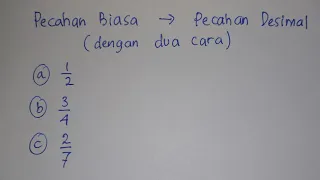 Pecahan Biasa → Pecahan Desimal
(dengan dua cara)
a 1/2
b 3/4
c 2/7